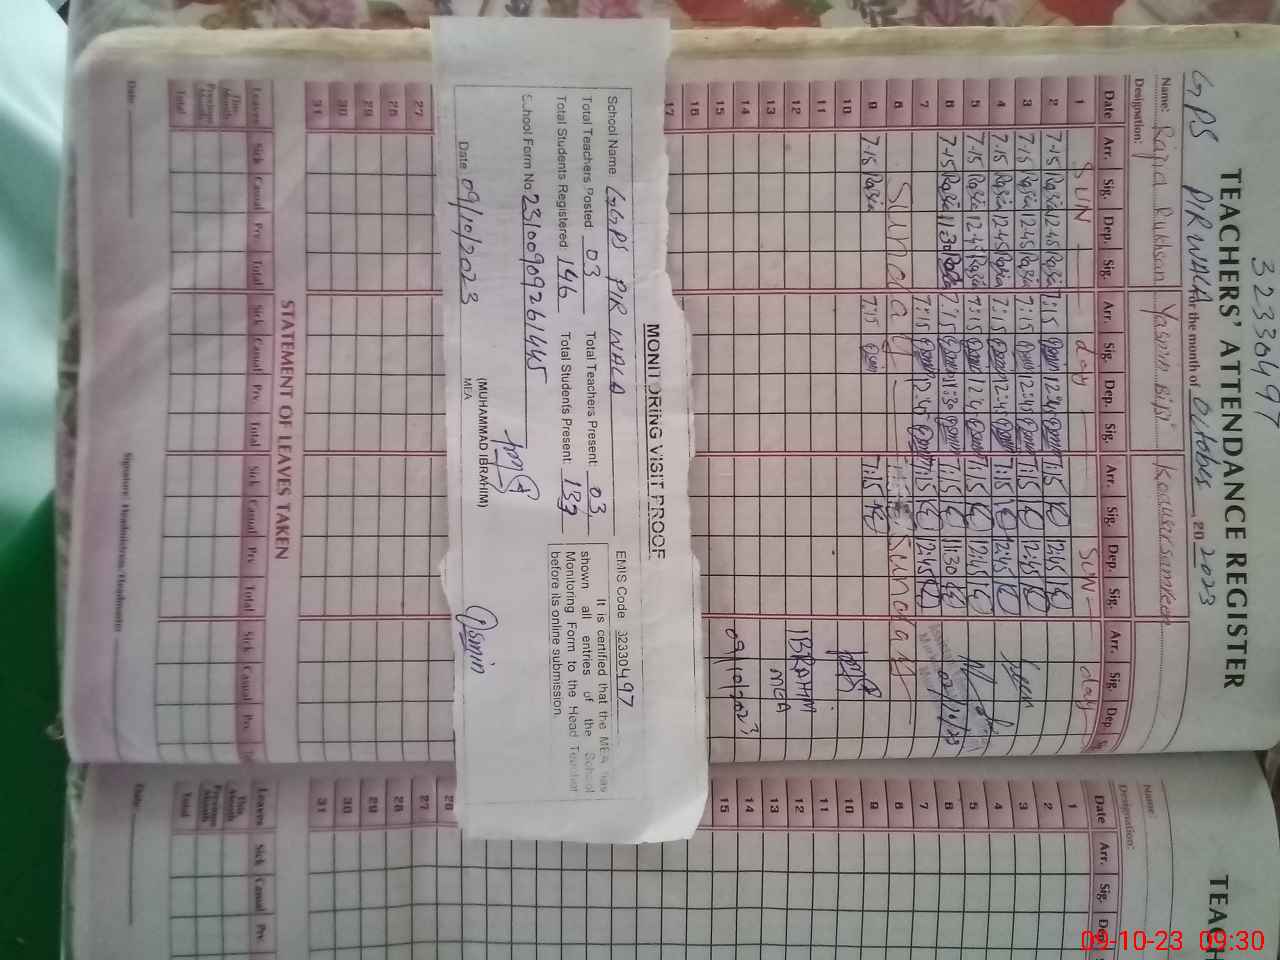 32330497
TEACHERS' ATTENDANCE REGISTER
GPS PIR WALA for the month of October, 20 2023
Name: Yasmin Bibi
Designation:
Date Arr. Sig. Dep. Sig. Arr. Sig. Dep. Sig. Arr. Sig. Dep. Sig. Arr. Sig. Dep
1 SUN day SUN day
2 7-15 Razia 12-45 Razia 7:15 12:45 7:15 12:45
3 7-15 Razia 12-45 Razia 7:15 12:45 7:15 12:45
4 7-15 Razia 12-45 Razia 7:15 12:45 7:15 12:45
5 7-15 Razia 12-45 Razia 7:15 12:45 7:15 12:45
6 7-15 Razia 11:30 7:15 11:30 7:15 11:30
7 7:15 12:45 7:15 12:45
8 Sunday Sunday
9 7-15 Razia 7:15 7:15
10
11
12 IBRAHIM
13 MEA
14 09/10/2023
15
16
17
MONITORING VISIT PROOF
School Name GGPS PIR WALA EMIS Code 32330497
Total Teachers Posted 03 Total Teachers Present: 03
Total Students Registered 146 Total Students Present:
School Form No
(MUHAMMAD IBRAHIM)
MEA
Date 09/10/2023
It is certified that the MEA has
shown all entries of the School
Monitoring Form to the Head Teacher
before its online submission.
Qsmin
27
28
29
30
31
STATEMENT OF LEAVES TAKEN
Leaves Sick Casual Prv Total Sick Casual Prv Total Sick Casual Prv Total Sick Casual Prv
This Month
Previous Month
Total
Date
Signature: Headmistress/Headmaster
TEACH
Name:
Designation:
Date Arr. Sig. Dep
1
2
3
4
5
6
7
8
9
10
11
12
13
14
15
28
27
28
29
30
31
Leaves Sick Casual Prv
This Month
Previous Month
Total
Date
09-10-23 09:30